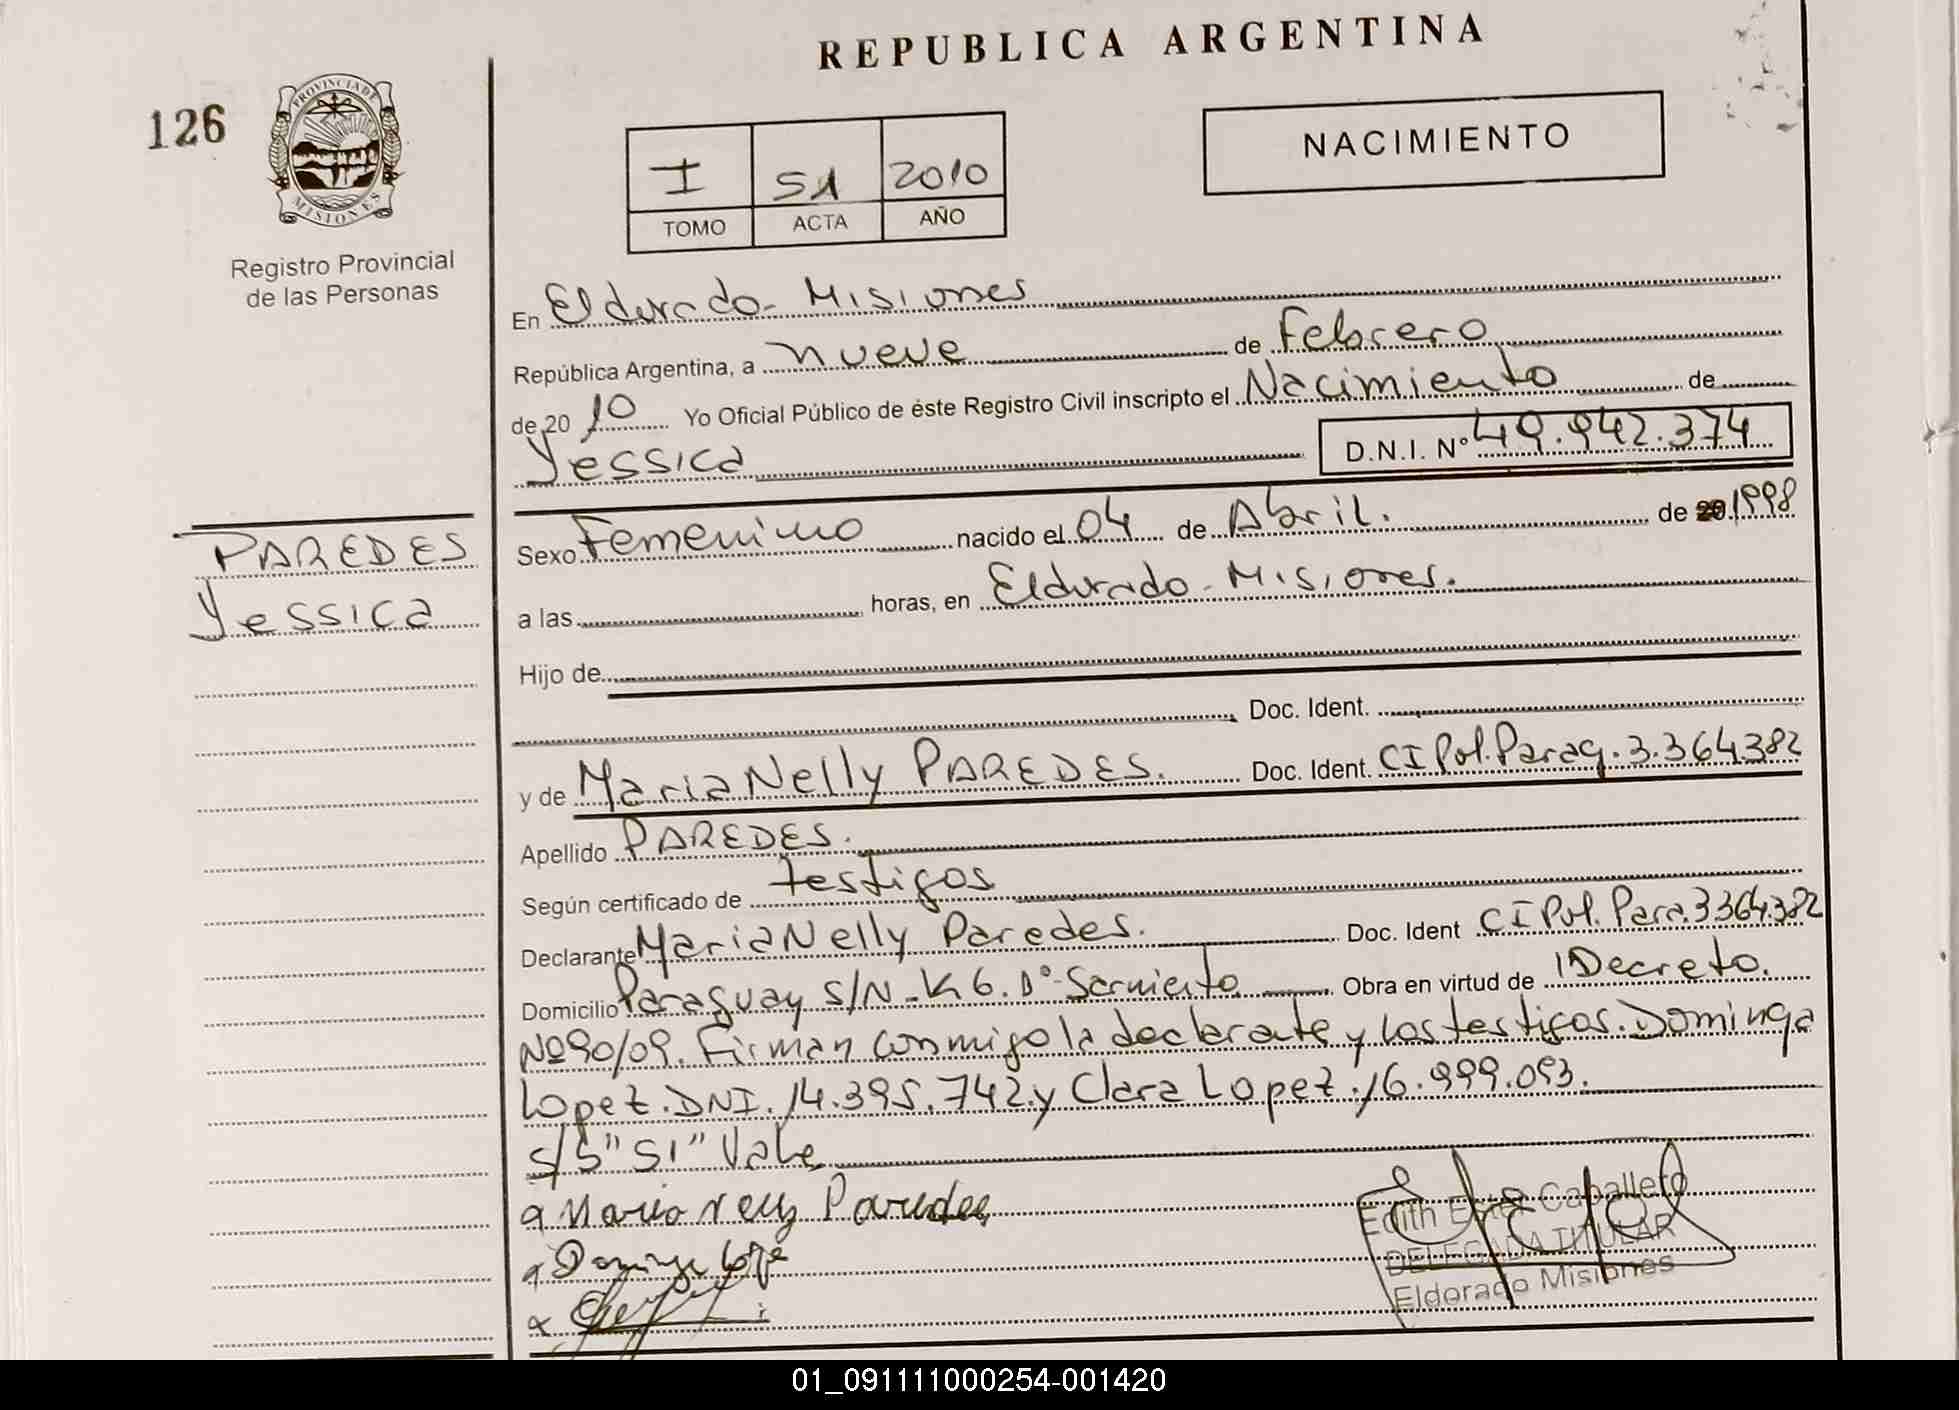 REPUBLICA ARGENTINA
126
PROVINCIA DE
MISIONES
Registro Provincial
de las Personas
I 51 2010
TOMO ACTA AÑO
NACIMIENTO
En Eldorado - Misiones
República Argentina, a nueve de Febrero
de 20 10 Yo Oficial Público de éste Registro Civil inscripto el Nacimiento de
Yessica D.N.I. Nº 49.942.374
PAREDES
Yessica
Sexo Femenino nacido el 04 de Abril. de 20 1998
a las horas, en Eldorado - Misiones.
Hijo de
Doc. Ident.
y de Maria Nelly PAREDES. Doc. Ident. CI Pol. Parag. 3.364382
Apellido PAREDES.
Según certificado de testigos
Declarante Maria Nelly Paredes. Doc. Ident CI Pol. Para. 3364.382
Domicilio Paraguay S/N - K 6. Dº Sarmiento Obra en virtud de Decreto.
Nº 90/09. Firman conmigo la declarante y los testigos. Dominga
Lopez. DNI. 14.395.742 y Clara Lopez. 16.999.093.
S/S "51" Vale
Maria Nelly Paredes
Edith Caballero
DELEGADA TITULAR
Eldorado Misiones
01_091111000254-001420